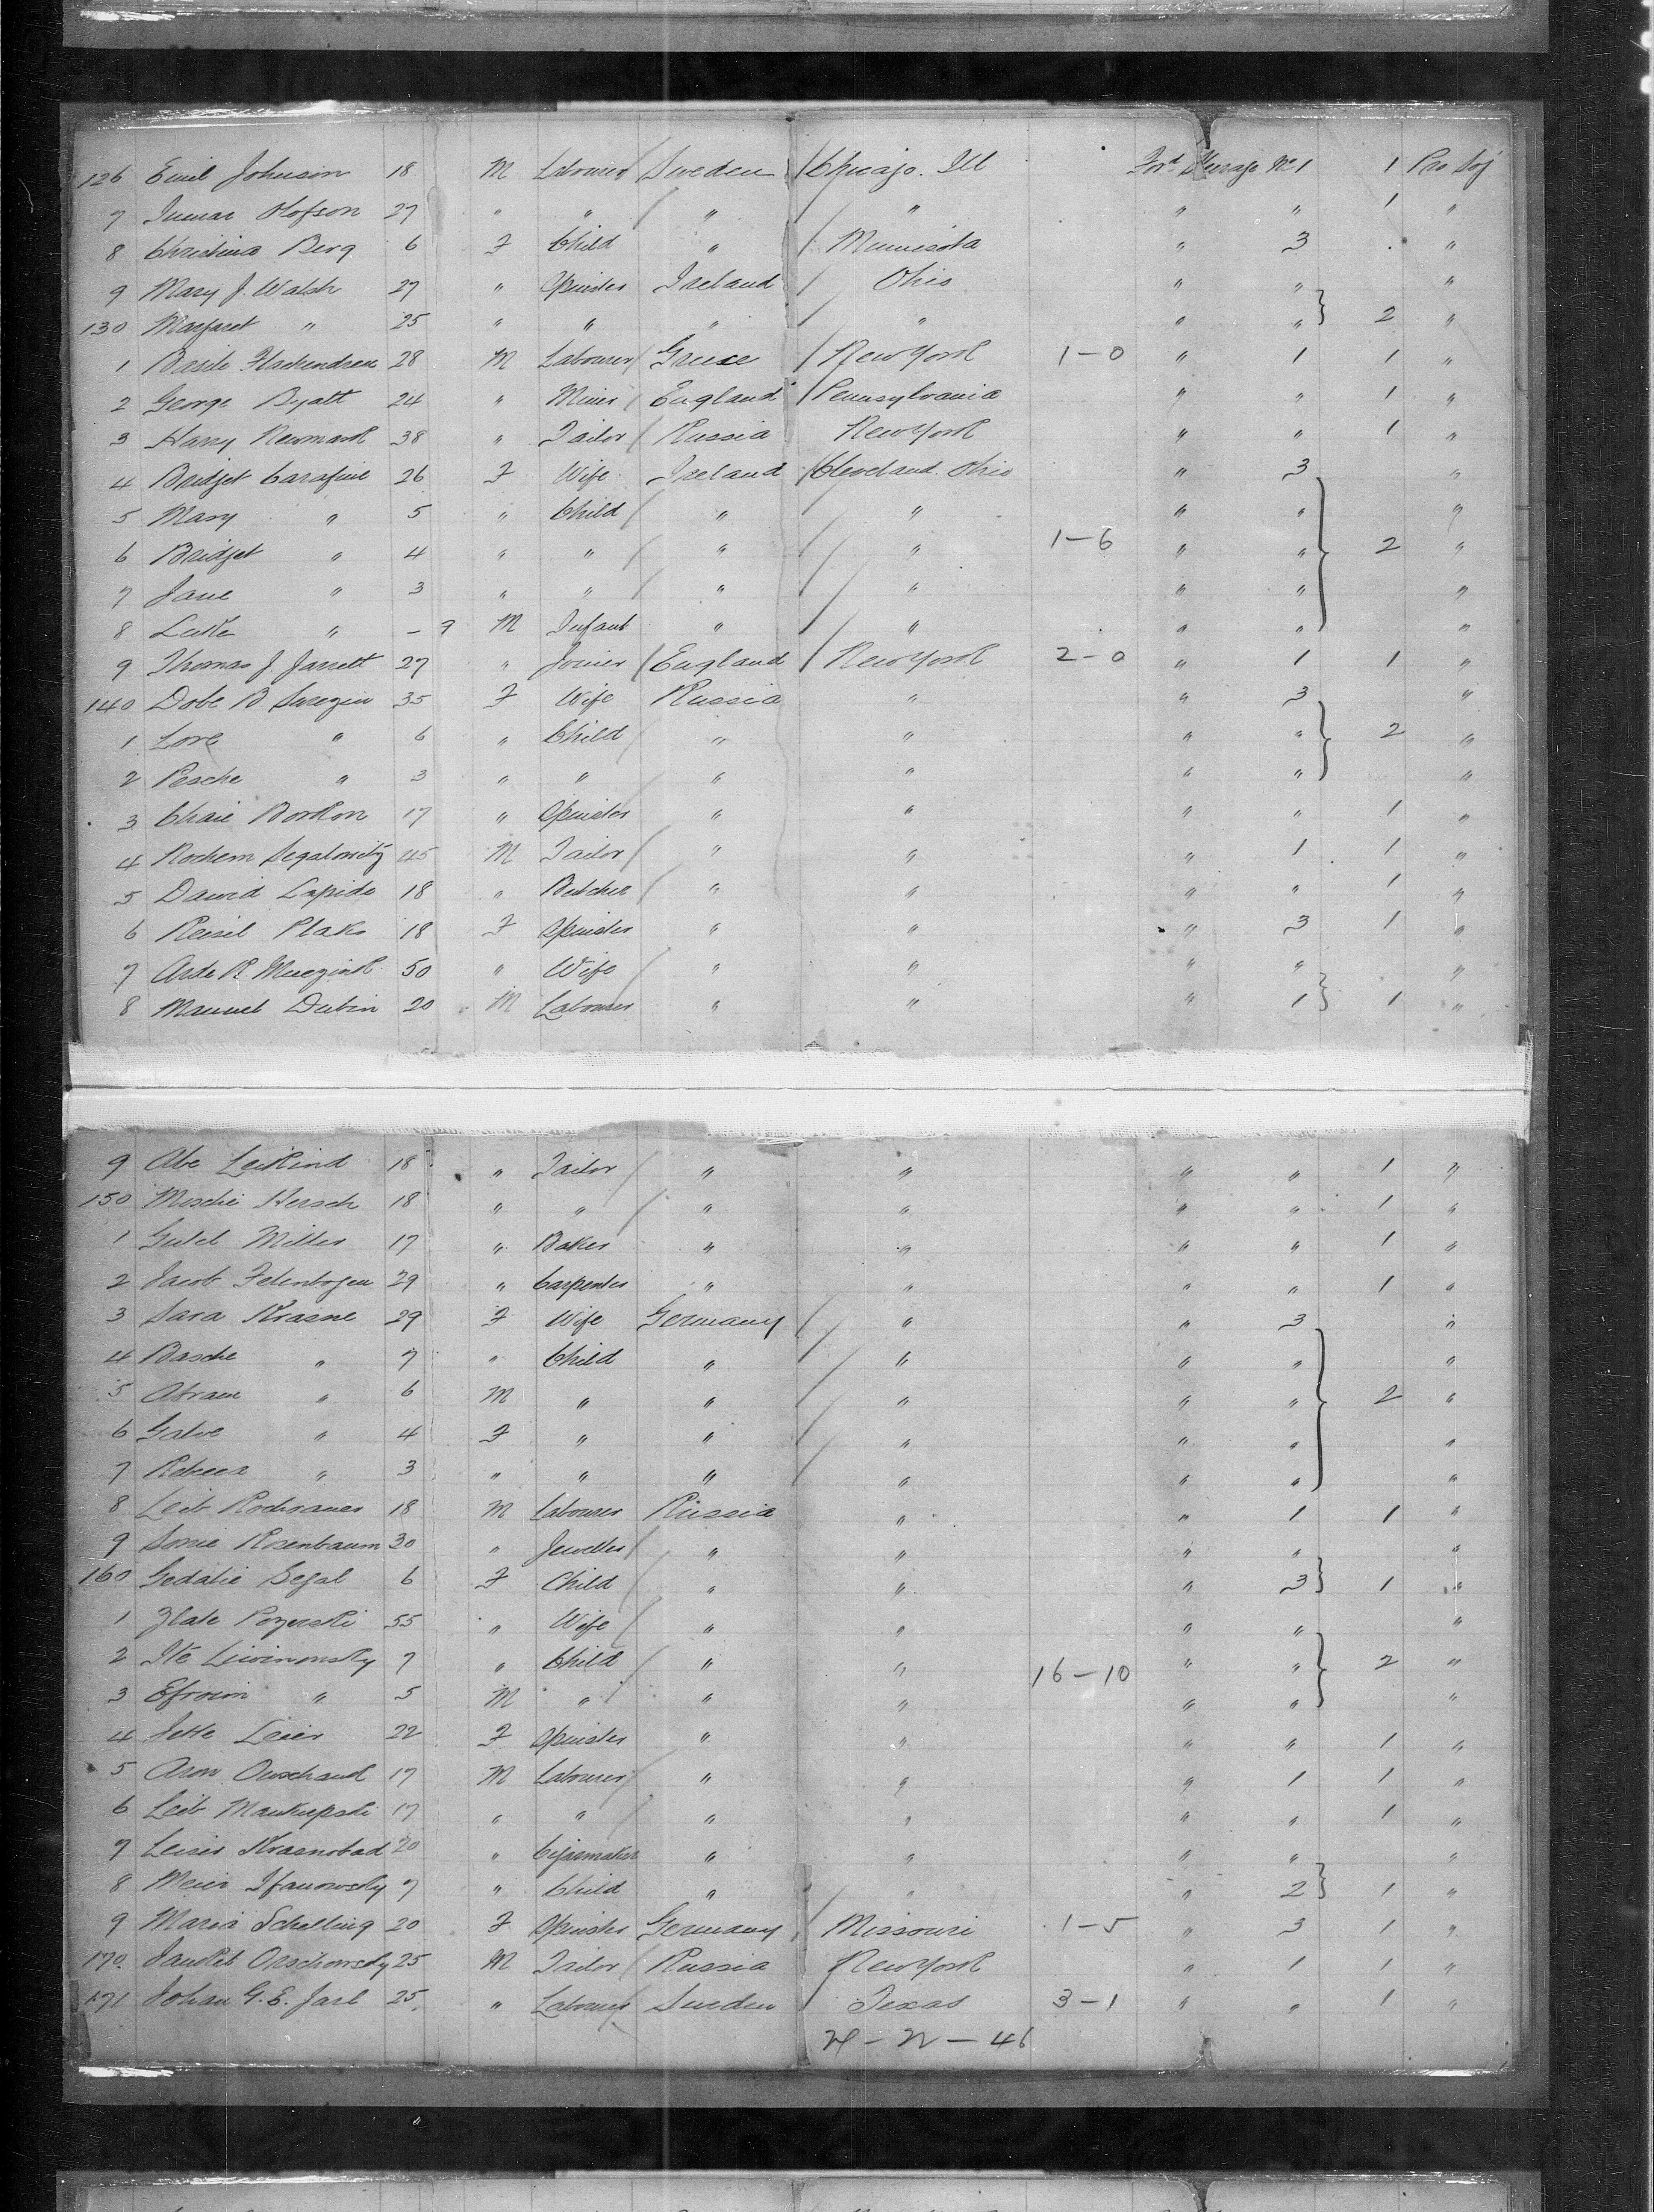 126 Emil Johnson 18 M Labourer Sweden Chicago. Ill For'd Steerage No 1 1 Pro Soj
7 Olofson 27 " " " " " " 1 "
8 Christina Berg 6 F Child " Minnisota " 3 . "
9 Mary J. Walsh 27 " Spinster Ireland Ohio " " "
130 Margaret " 25 " " " " " " 2 "
1 Basile 28 M Labourer Greece New York 1-0 " 1 1 "
2 George Byatt 24 " Miner England Pennsylvania " " 1 "
3 Harry Newmark 38 " Tailor Russia New York " " 1 "
4 Bridget 26 F Wife Ireland Cleveland. Ohio " 3 "
5 Mary " 5 " Child " " " " "
6 Bridget " 4 " " " " 1-6 " " 2 "
7 Jane " 3 " " " " " " "
8 Luke " - 9 M Infant " " " " "
9 Thomas J. Jarrett 27 " Joiner England New York 2-0 " 1 1 "
140 Dobe B 35 F Wife Russia " " 3 "
1 " 6 " Child " " " " 2 "
2 Pesche " 3 " " " " " " "
3 Chaie Borkon 17 " Spinster " " " " 1 "
4 45 M Tailor " " " 1 1 "
5 Dawid Lapide 18 " Butcher " " " " 1 "
6 Reisel Plaks 18 F Spinster " " " 3 1 "
7 50 " Wife " " " " "
8 Manuel Dubin 20 M Labourer " " " 1 1 "
9 Abe Leikind 18 " Tailor " " " " 1 "
150 Moschi Hersch 18 " " " " " " 1 "
1 Miller 17 " Baker " " " " 1 "
2 Jacob 29 " Carpenter " " " " 1 "
3 Sara Krasne 29 F Wife Germany " " 3 "
4 Basche " 7 " Child " " " " "
5 Abram " 6 M " " " " " 2 "
6 " 4 F " " " " " "
7 Rebecca " 3 " " " " " " "
8 Leib 18 M Labourer Russia " " 1 1 "
9 Rosenbaum 30 " Jeweller " " " " "
160 Gedalie Segal 6 F Child " " " 3 1 "
1 Zlate 55 " Wife " " " " "
2 Ite 7 " Child " " 16-10 " " 2 "
3 Efroim " 5 M " " " " " "
4 Jette Leier 22 F Spinster " " " " 1 "
5 Aron 17 M Labourer " " " 1 1 "
6 Leib 17 " " " " " " 1 "
7 Leiser 20 " Cigarmaker " " " " "
8 Meier 7 " Child " " " 2 1 "
9 Maria Schelling 20 F Spinster Germany Missouri 1-5 " 3 1 "
170. 25 M Tailor Russia New York " 1 1 "
171 Johan G. E. Jarl 25 " Labourer Sweden Texas 3-1 " " 1 "